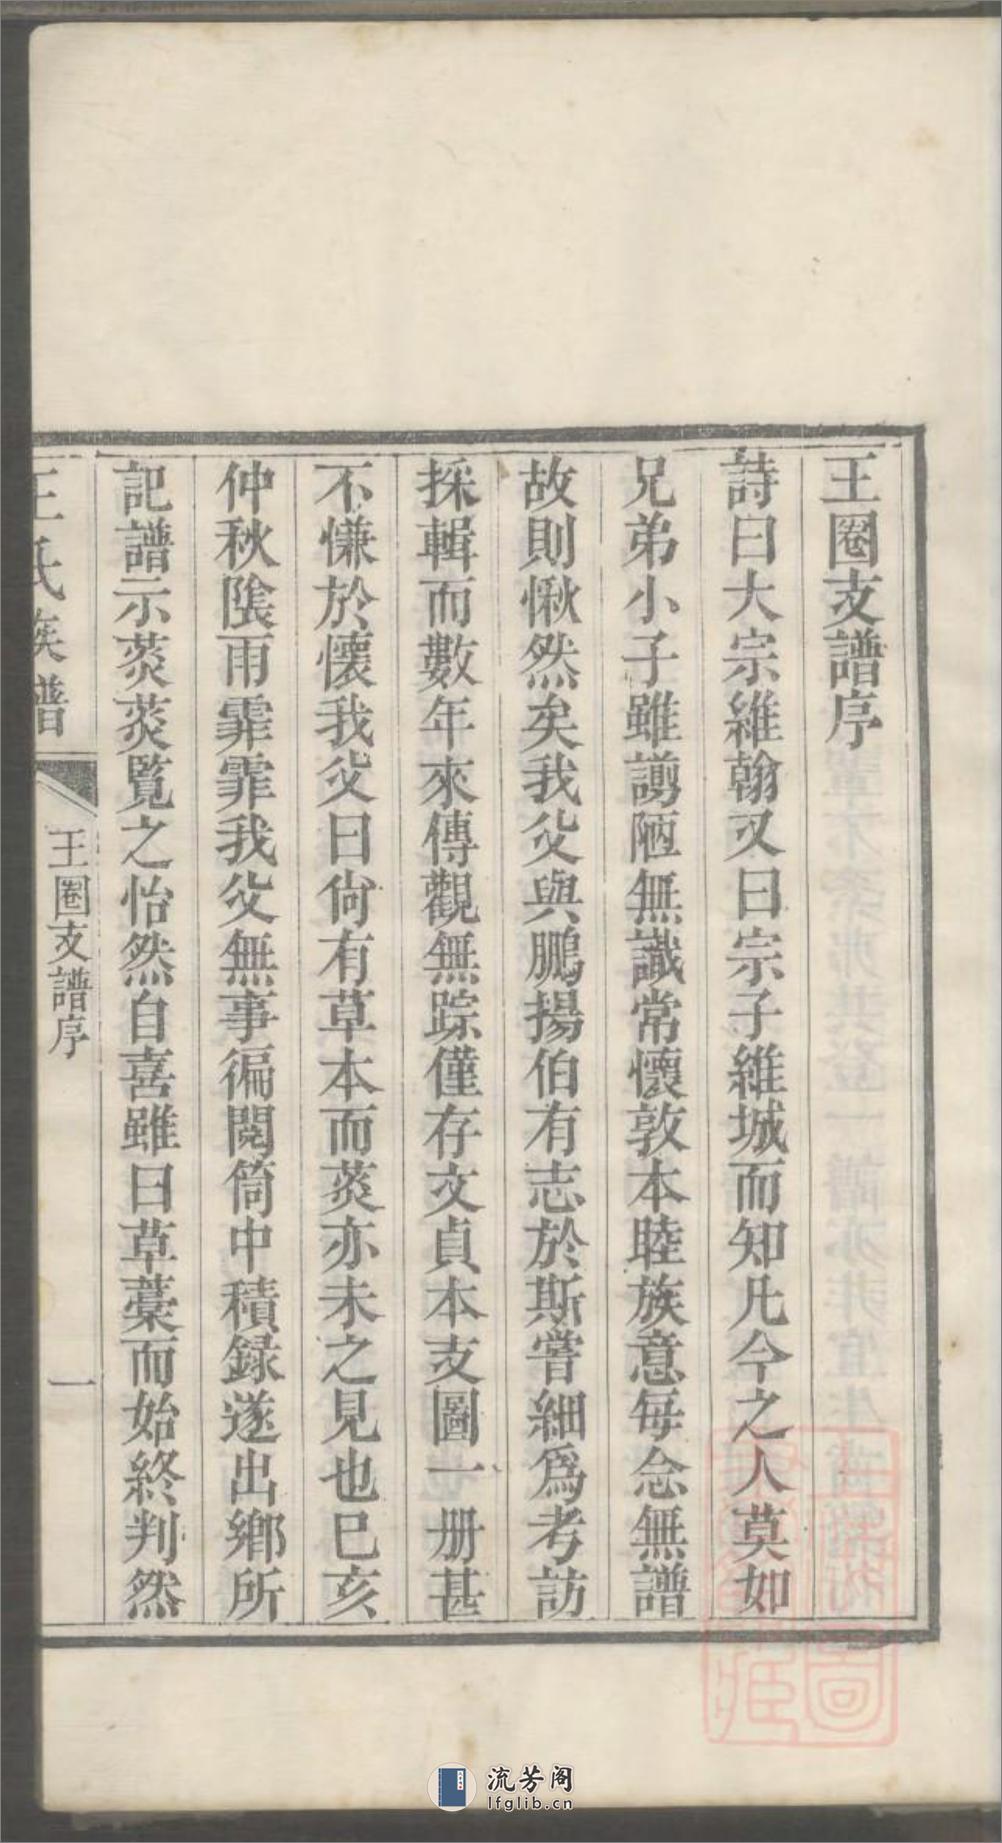 王圈支譜序
詩曰大宗維翰又曰宗子維城而知凡今之人莫如
兄弟小子雖謭陋無識常懷敦本睦族意每念無譜
故則愀然矣我父與鵬揚伯有志於斯嘗細爲考訪
採輯而數年來傳觀無踪僅存文貞本支圖一册甚
不慊於懷我父曰尙有草本而葵亦未之見也已亥
仲秋陰雨霏霏我父無事徧閱筒中積録遂出鄉所
記譜示葵葵覧之怡然自喜雖曰草藳而始終判然
王氏族譜
王圈支譜序
一
流芳阁
lfglib.cn